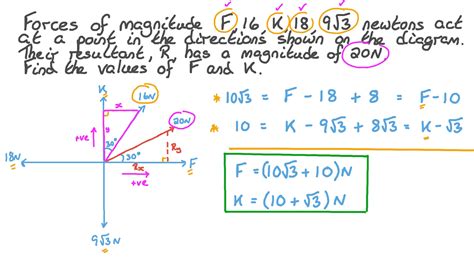 Forces of magnitude F, 16, K, 18, 9√3 newtons act
at a point in the directions shown on the diagram.
Their resultant, R, has a magnitude of 20N
Find the values of F and K.
K
x
16N
20N
y
+ve
30°
Ry
30°
18N
Rx
F
+ve
9√3 N
* 10√3 = F - 18 + 8 = F - 10
* 10 = K - 9√3 + 8√3 = K - √3
F = (10√3 + 10) N
K = (10 + √3) N